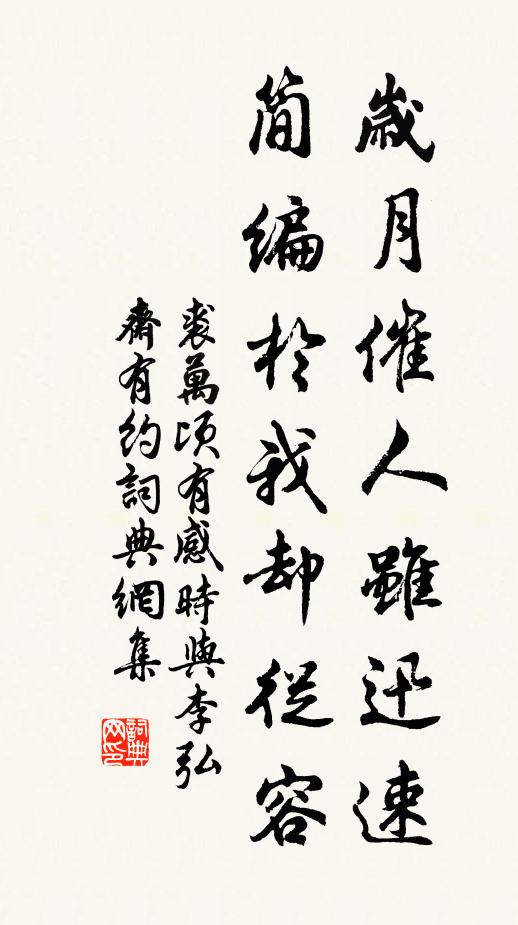 歲月催人雖迅速
簡編於我却從容
裘萬頃有感時與李弘
齋有約詞典網集
詞典
网印